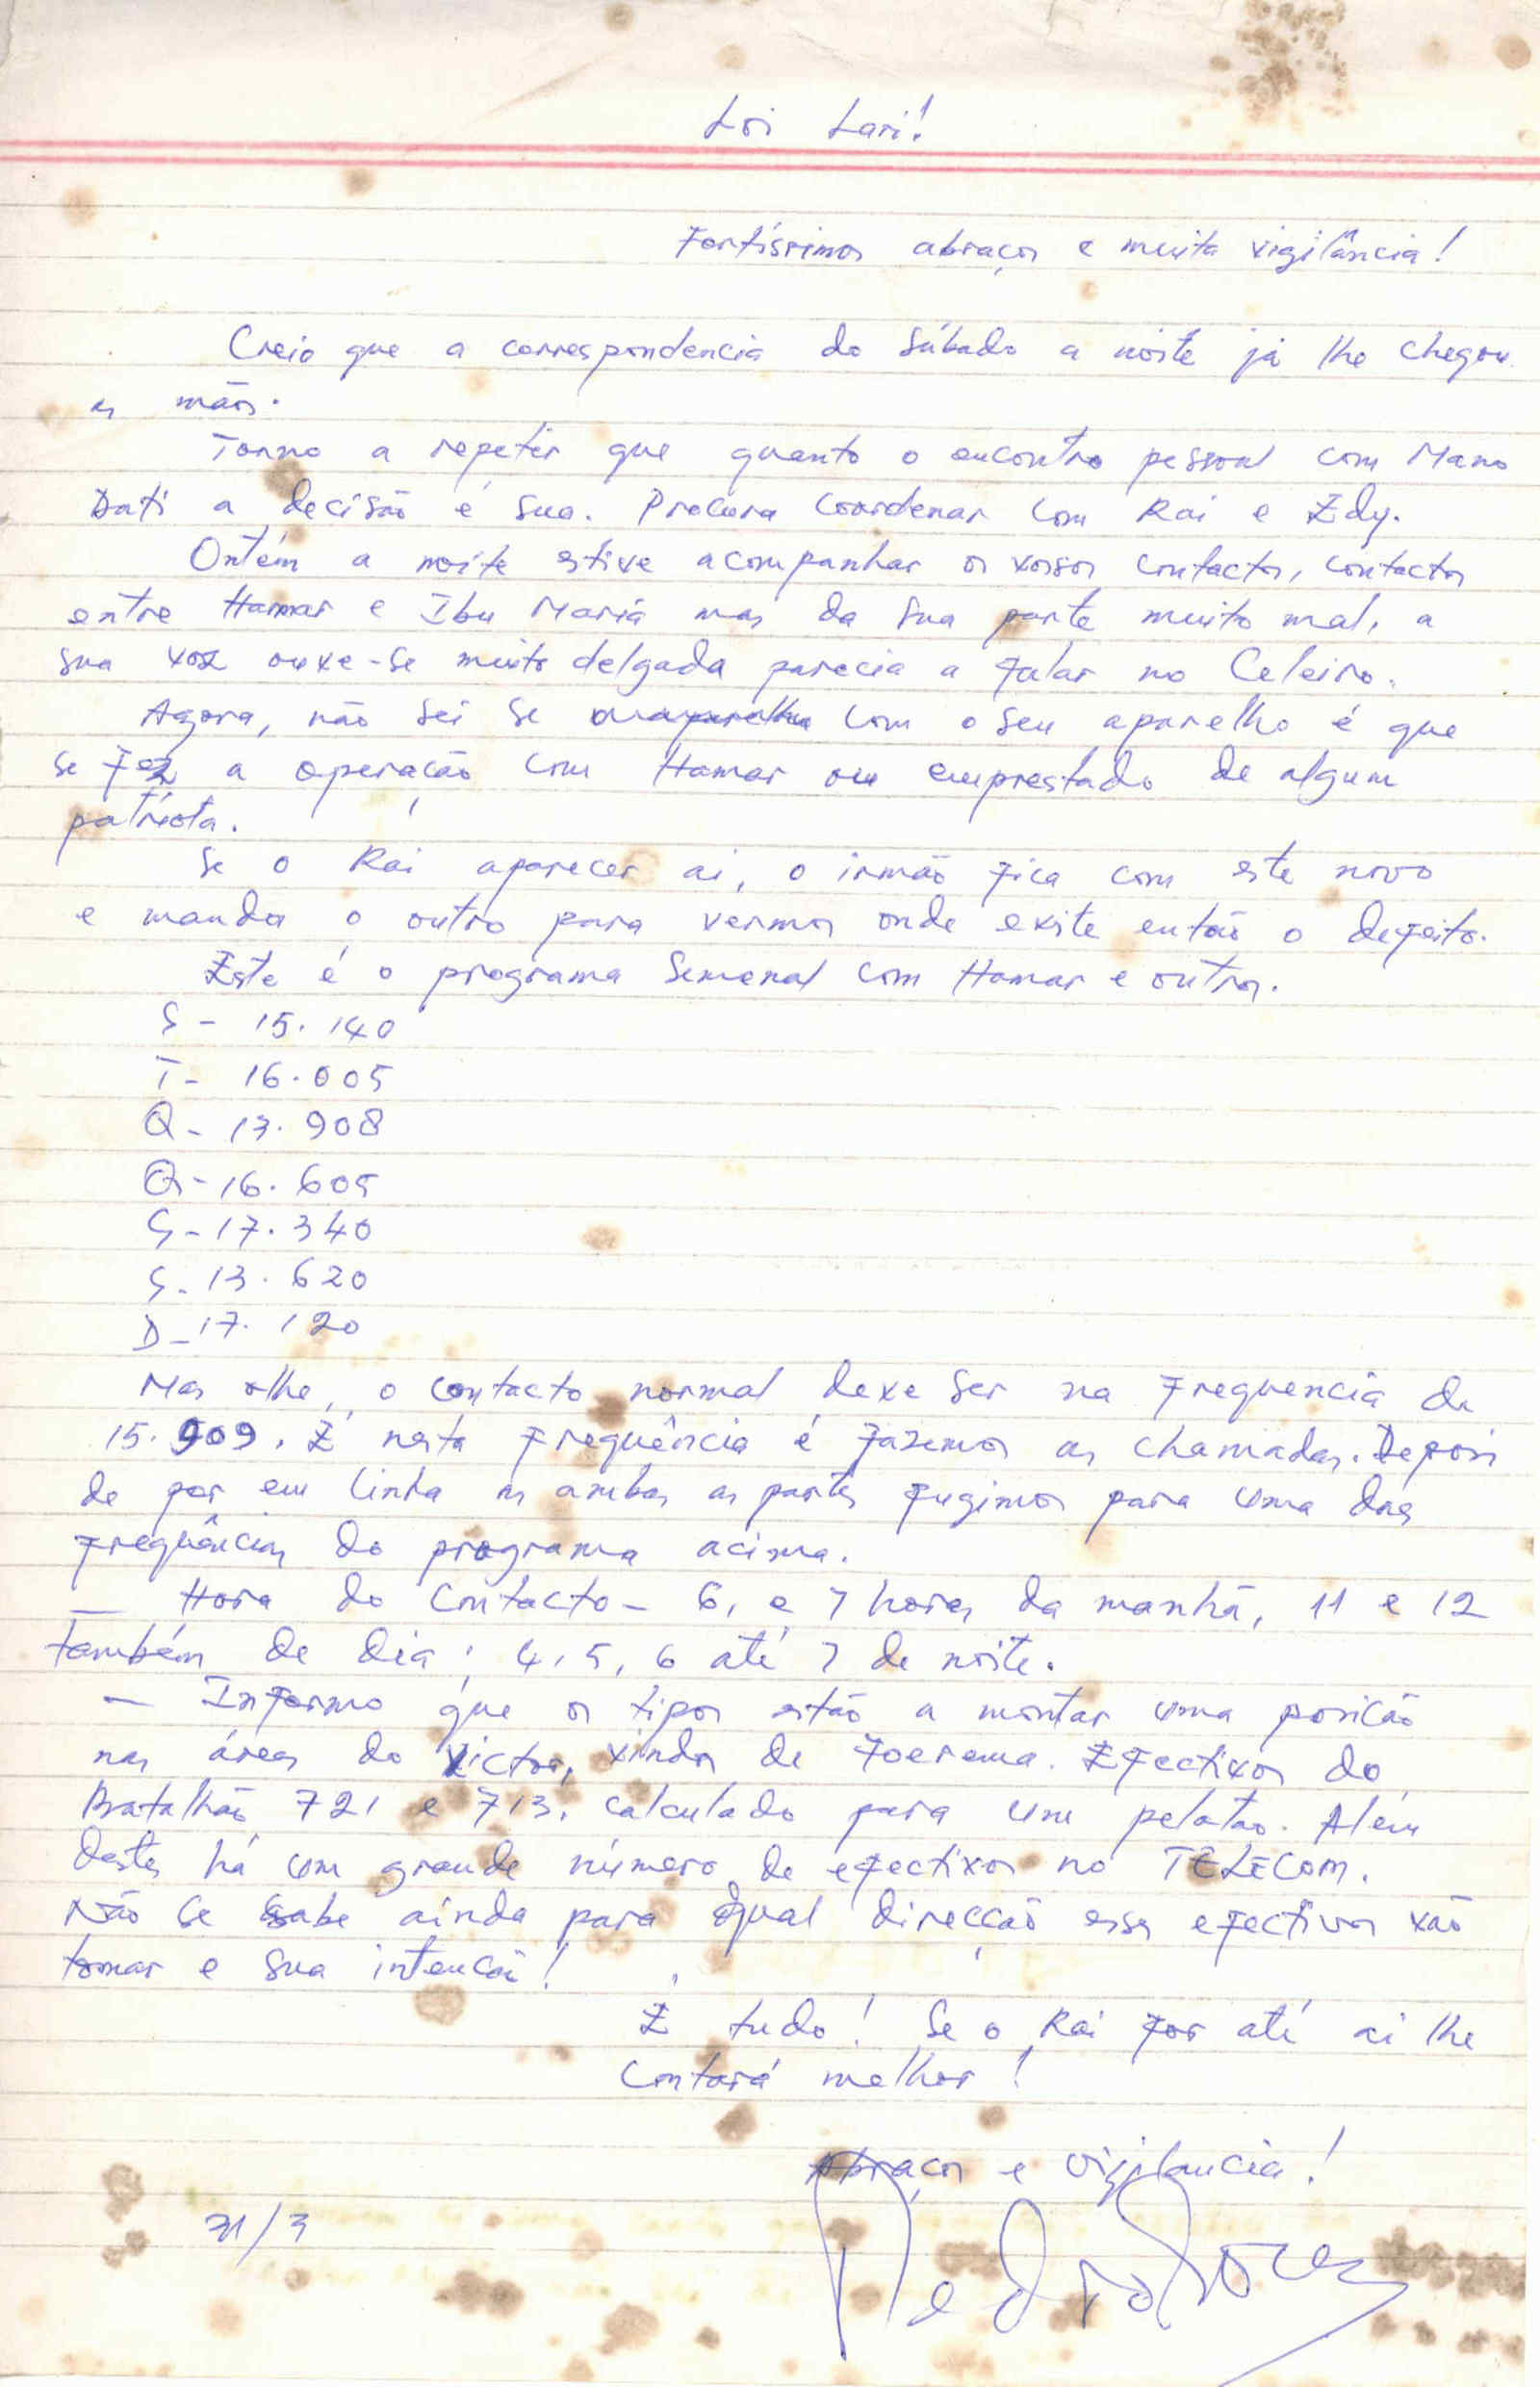 Loi Lari!
Fortíssimos abraços e muita vigilância!
Creio que a correspondencia do Sábado a noite já lhe chegou
as mãos.
Torno a repetir que quanto o encontro pessoal com Mano
Dati a decisão é sua. Procura coordenar com Rai e Edy.
Ontém a noite estive acompanhar os vossos contactos, contactos
entre Hamar e Ibu Maria mas da sua parte muito mal, a
sua voz ouve-se muito delgada parecia a falar no Celeiro.
Agora, não sei se com o seu aparelho é que
se fez a operação com Hamar ou emprestado de algum
patriota.
Se o Rai aparecer ai, o irmão fica com este novo
e manda o outro para vermos onde exite então o defeito.
Este é o programa Semanal com Hamar e outros.
S - 15.140
T - 16.005
Q - 13.908
Q - 16.605
S - 17.340
S - 13.620
D - 17.120
Mas olhe, o contacto normal deve ser na frequencia de
15.909. É nesta frequência é fazemos as chamadas. Depois
de por em linha as ambas as partes fugimos para uma das
frequências do programa acima.
— Hora do Contacto - 6, e 7 horas da manhã, 11 e 12
também de dia; 4, 5, 6 até 7 de noite.
— Informo que os tipos estão a montar uma posição
nas áreas do Victor, vindos de Foerema. Efectivos do
Batalhão 721 e 713, calculado para um pelotão. Além
destes há um grande número de efectivos no TELECOM.
Não se sabe ainda para qual direcção esses efectivos vão
tomar e sua intenção!
É tudo! Se o Rai for até ai lhe
contará melhor!
Abraços e vigilancia!
31/3